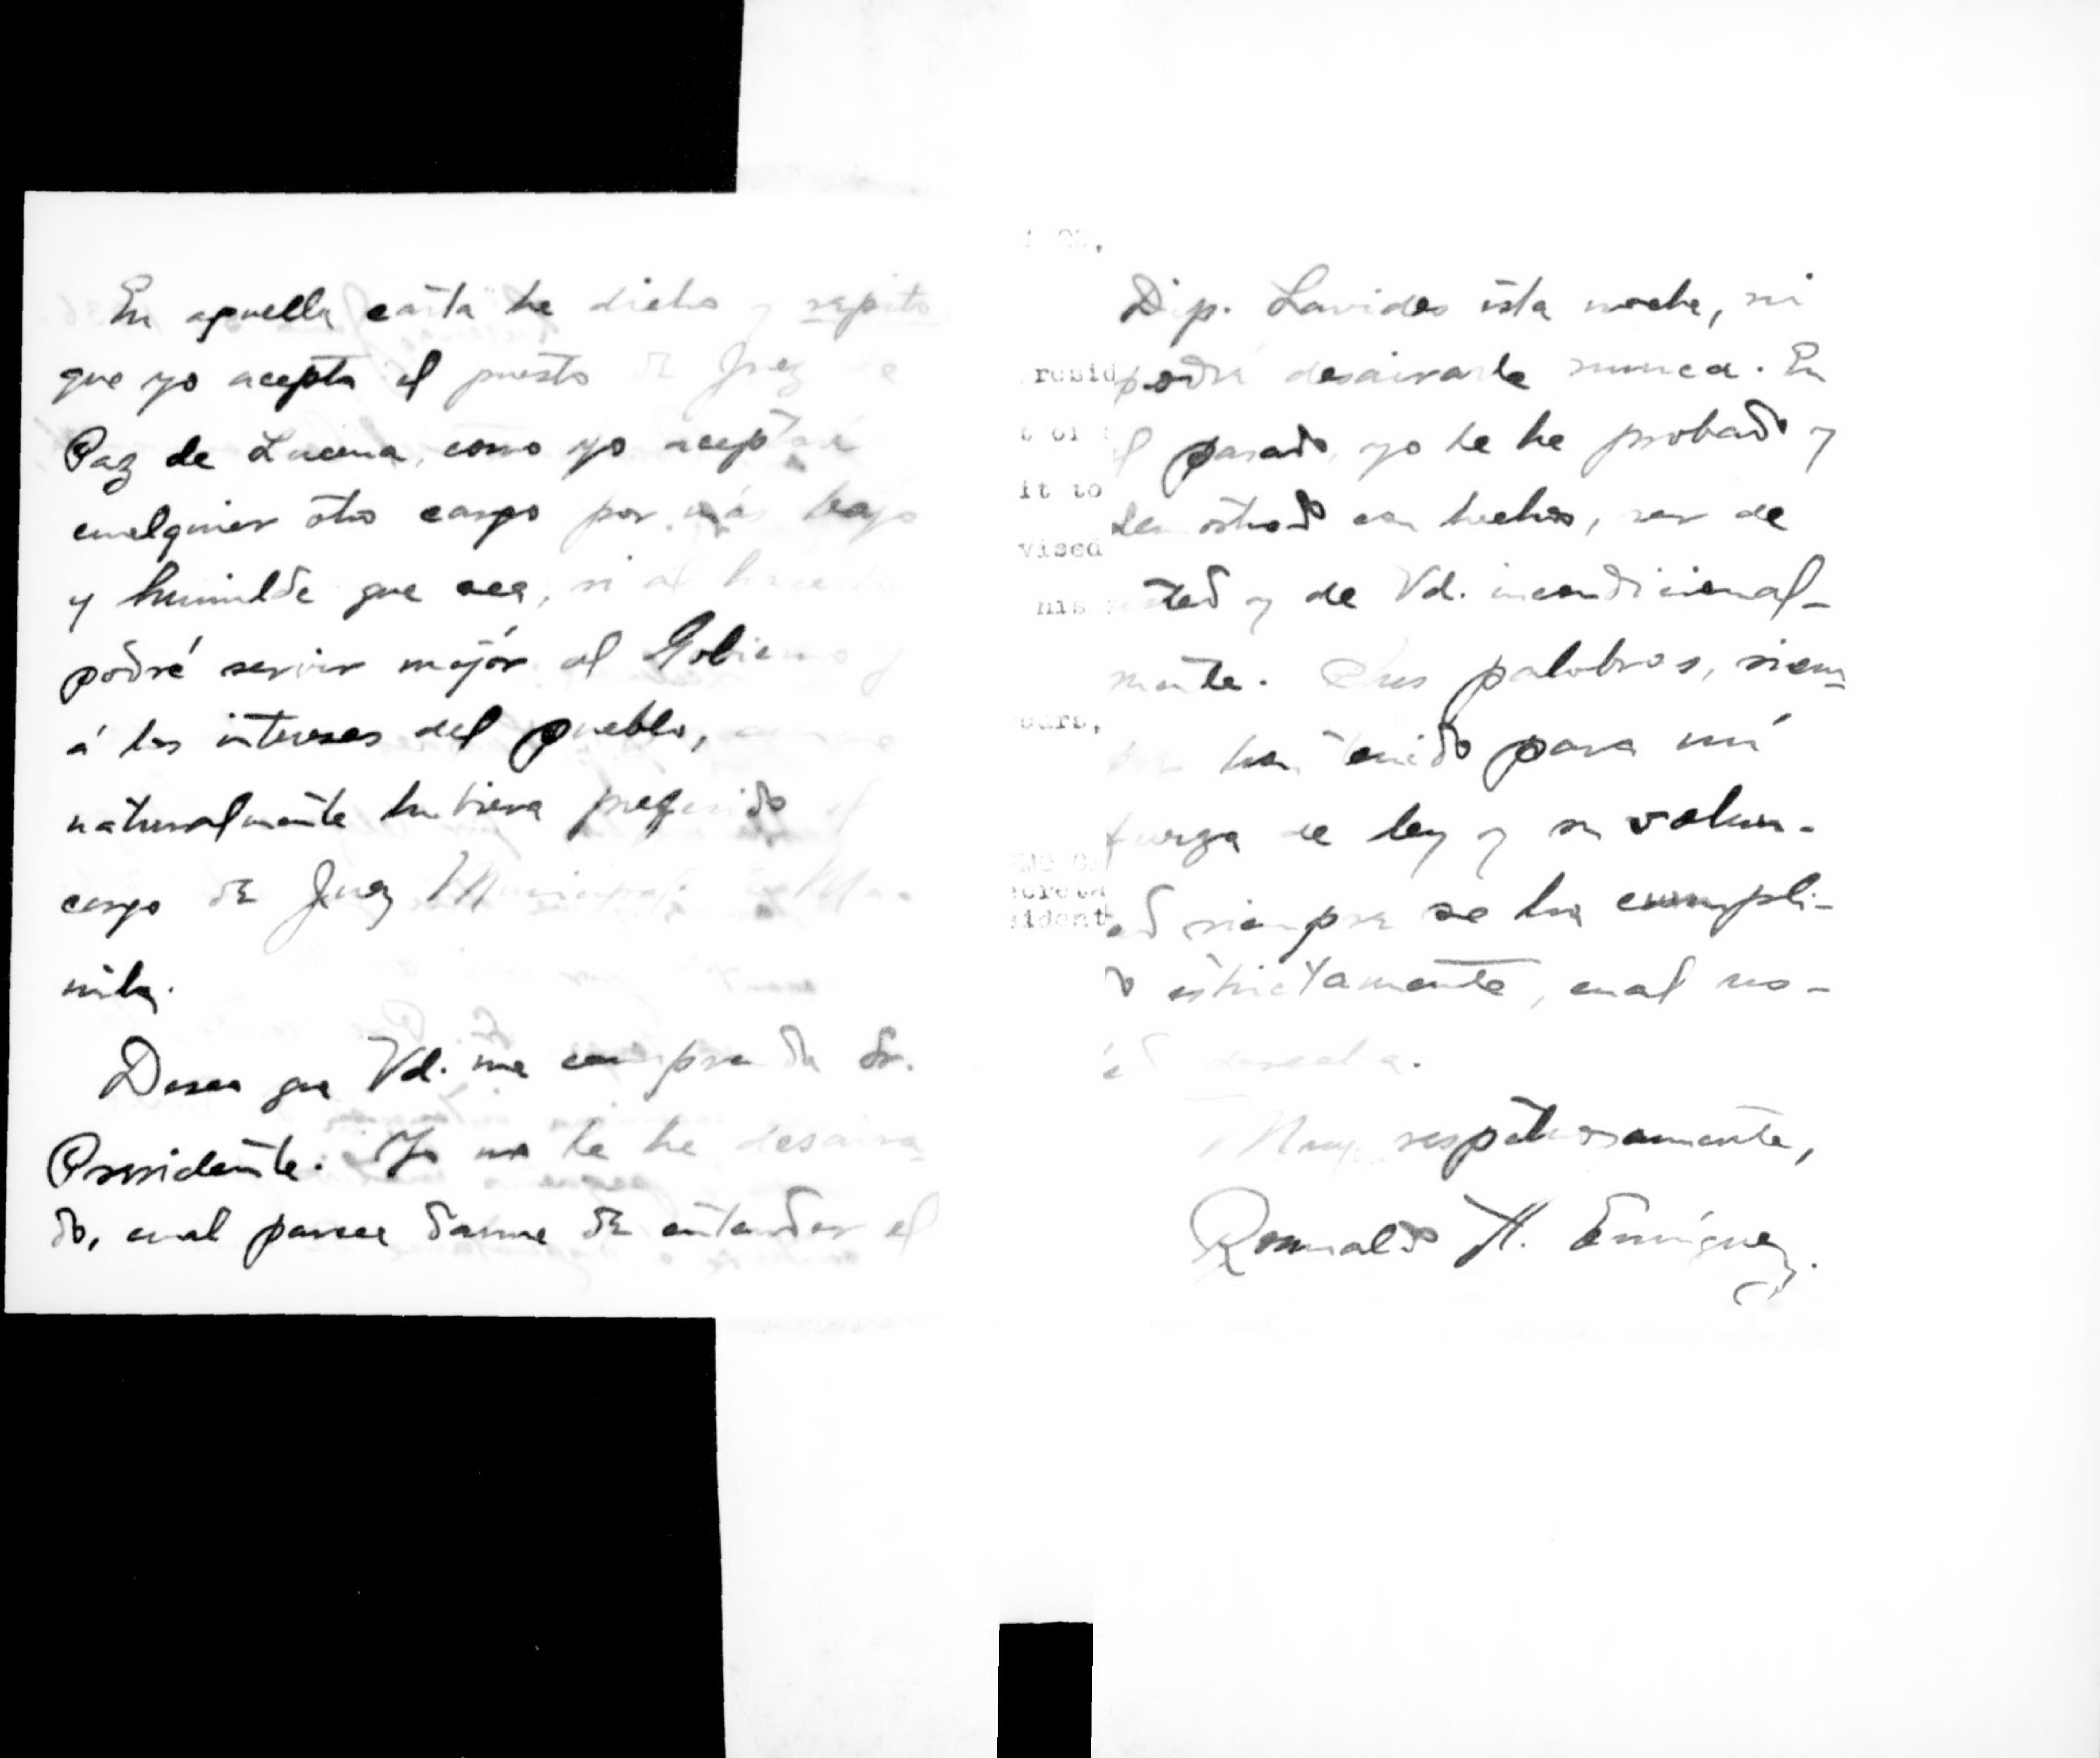 En aquella carta he dicho y repito
que yo acepto el puesto de Juez de
Paz de Lucena, como yo aceptaré
cualquier otro cargo por más bajo
y humilde que sea, si al hacerlo
podré servir mejor al Gobierno y
á los intereses del pueblo, aunque
naturalmente hubiera preferido el
cargo de Juez Municipal de Ma-
nila.
Deseo que Vd. me comprenda Sr.
Presidente. Yo no le he desaira-
do, cual parece darme de entender el
Dip. Lavides esta noche, ni
podré desairarle nunca. En
el pasado, yo le he probado y
demostrado con hechos, ser de
usted y de Vd. incondicional-
mente. Sus palabras, siem-
pre han tenido para mí
fuerza de ley y su volun-
tad siempre se ha cumpli-
do estrictamente, cual
deseaba.
Muy respetuosamente,
Romualdo H. Enríquez.
resid
it to
vised
his
ours,
sident